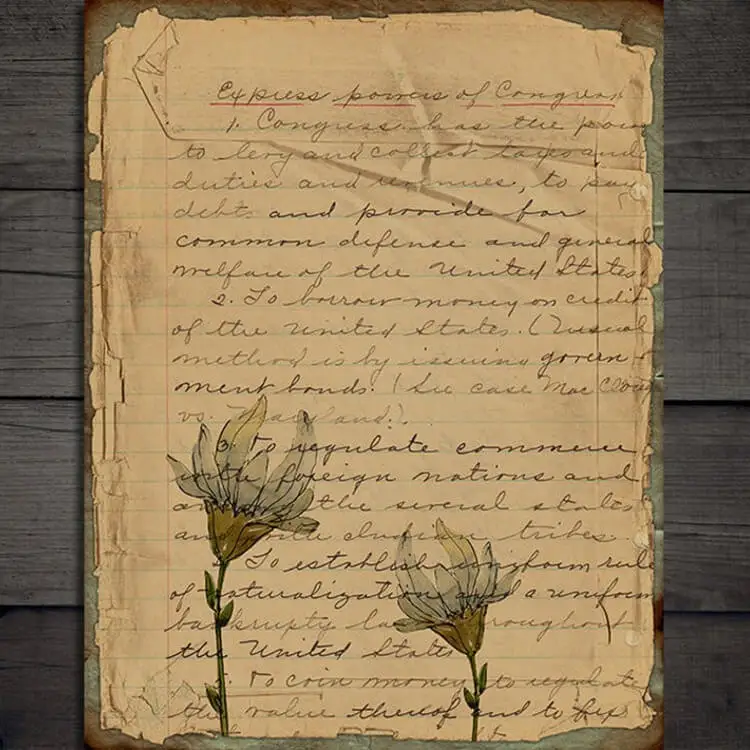 Express powers of Congress
1. Congress has the power
to levy and collect taxes and
duties and revenues, to pay
debts and provide for
common defense and general
welfare of the United States
2. To borrow money on credit
of the United States. (Usual
method is by issuing govern
ment bonds. (See case Mac
vs. Maryland.).
3. To regulate commerce
with foreign nations and
the several states
and with Indian tribes.
To establish uniform rule
of naturalization and a uniform
bankruptcy throughout
the United States
To coin money, to regulate
the value thereof and to fix